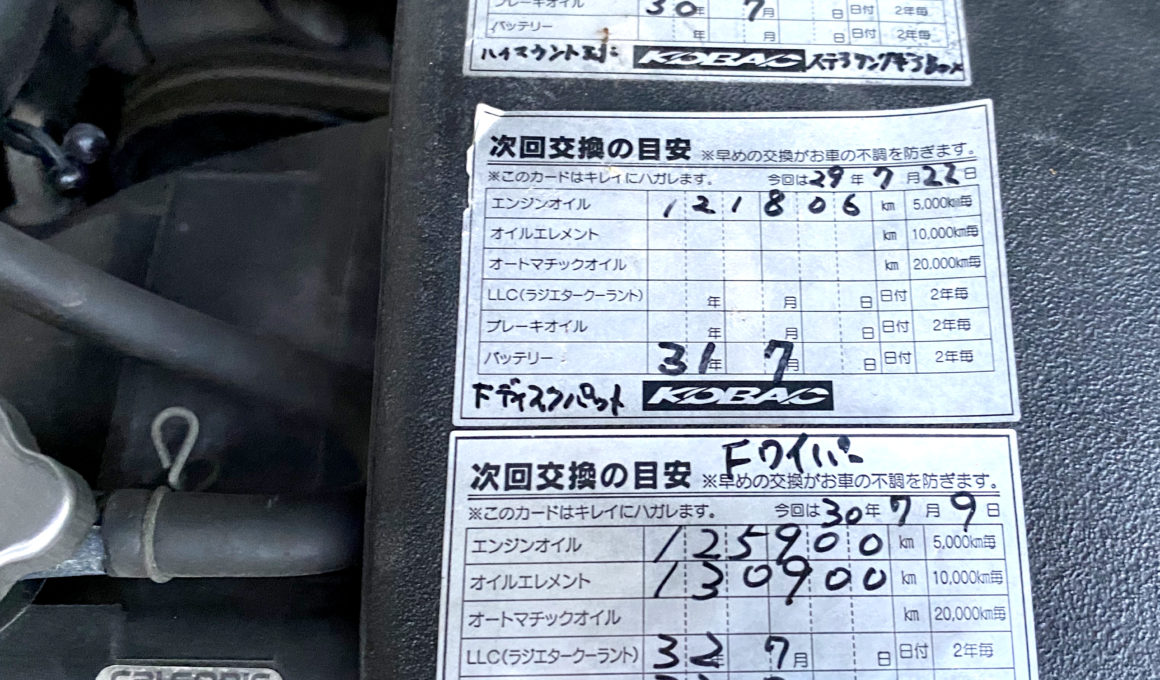 ブレーキオイル 30年 7月 日 日付 2年毎
バッテリー 年 月 日 日付 2年毎
KOBAC
次回交換の目安 ※早めの交換がお車の不調を防ぎます。
※このカードはキレイにハガレます。 今回は29年7月22日
エンジンオイル 121806 km 5,000km毎
オイルエレメント km 10,000km毎
オートマチックオイル km 20,000km毎
LLC(ラジエタークーラント) 年 月 日 日付 2年毎
ブレーキオイル 年 月 日 日付 2年毎
バッテリー 31年 7月 日 日付 2年毎
Fディスクパット KOBAC
Fワイパー
次回交換の目安 ※早めの交換がお車の不調を防ぎます。
※このカードはキレイにハガレます。 今回は30年7月9日
エンジンオイル 125900 km 5,000km毎
オイルエレメント 130900 km 10,000km毎
オートマチックオイル km 20,000km毎
LLC(ラジエタークーラント) 32年 7月 日 日付 2年毎